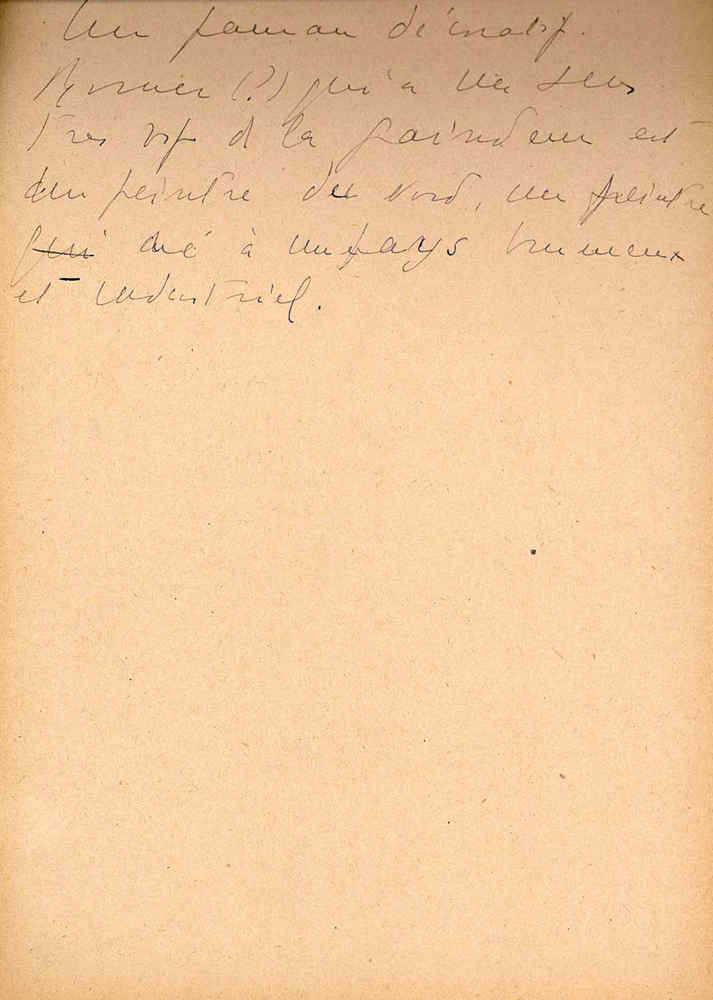 Un panneau décoratif.
(?) qui a un sens
très vif de la grandeur est
un peintre du Nord, un peintre
qui né à un pays brumeux
et industriel.